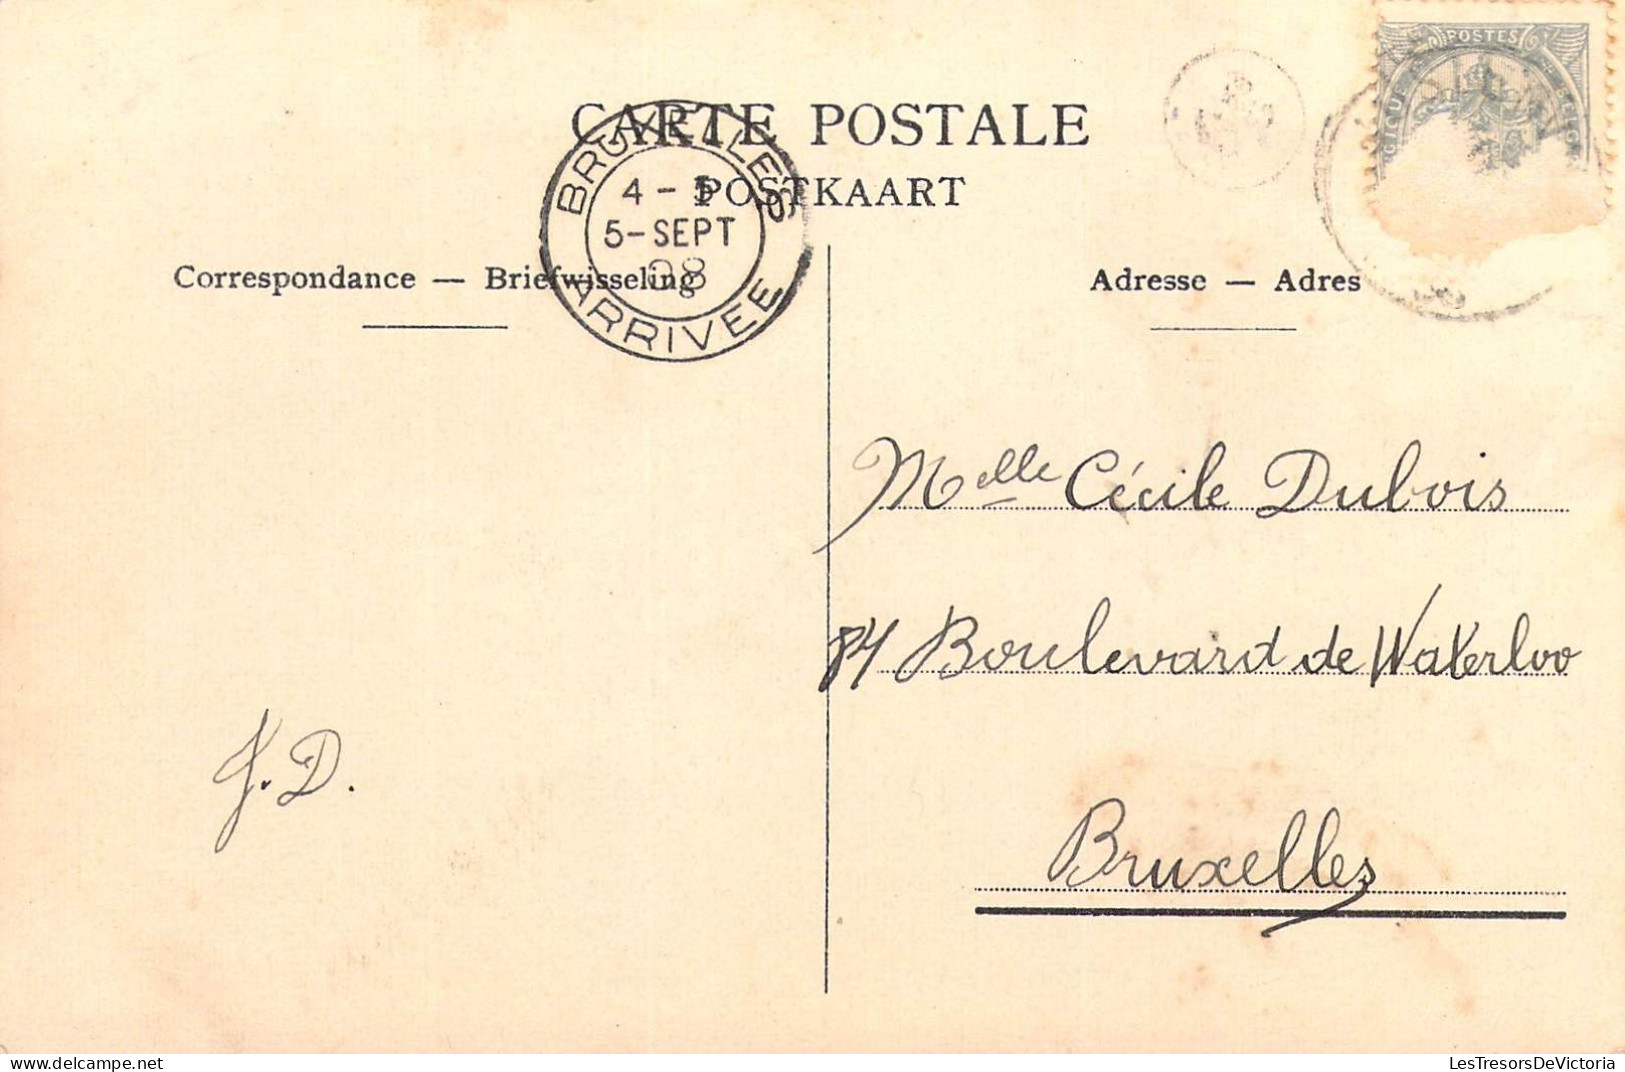 POSTES
CARTE POSTALE
POSTKAART
BRUXELLES
4 - 5
5-SEPT
08
ARRIVEE
Correspondance — Briefwisseling
Adresse — Adres
Melle Cécile Dubois
84 Boulevard de Waterloo
J. D.
Bruxelles
LesTresorsDeVictoria